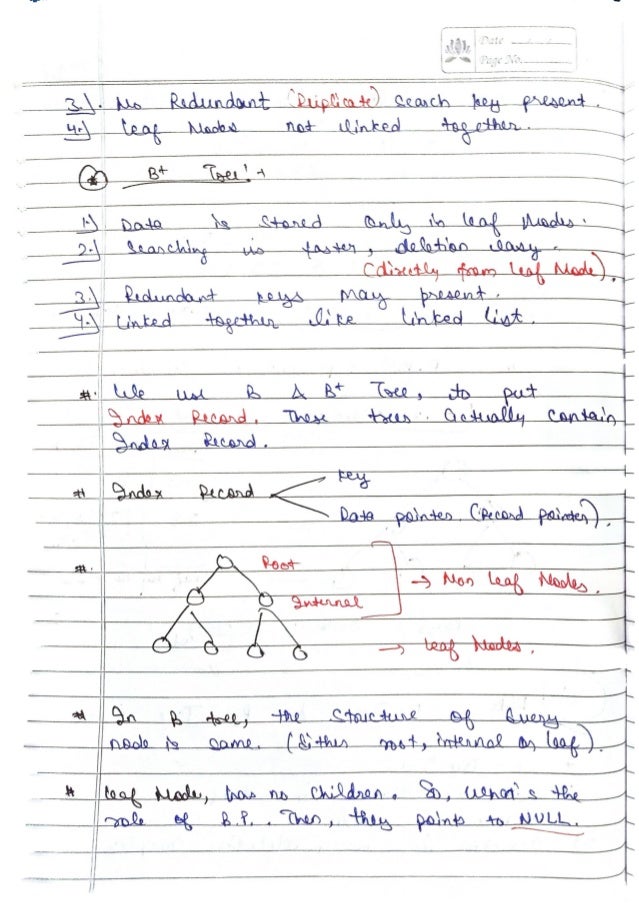 Date
Page No.
3.) No Redundant (Duplicate) search key present.
4.) Leaf Nodes not linked together.
* B+ Tree:-
1.) Data is stored only in leaf Nodes.
2.) Searching is faster, deletion easy.
(directly from Leaf Node).
3.) Redundant keys may present.
4.) Linked together like linked list.
# We use B & B+ Tree, to put
Index Record. These trees actually contain
Index Record.
# Index Record
Key
Data pointer (Record pointer).
#
Root
Internal
→ Non Leaf Nodes.
→ Leaf Nodes.
# In B tree, the structure of every
node is same. (Either root, internal or leaf).
# Leaf Node, has no children. So, what's the
role of B.P. Then, they points to NULL.